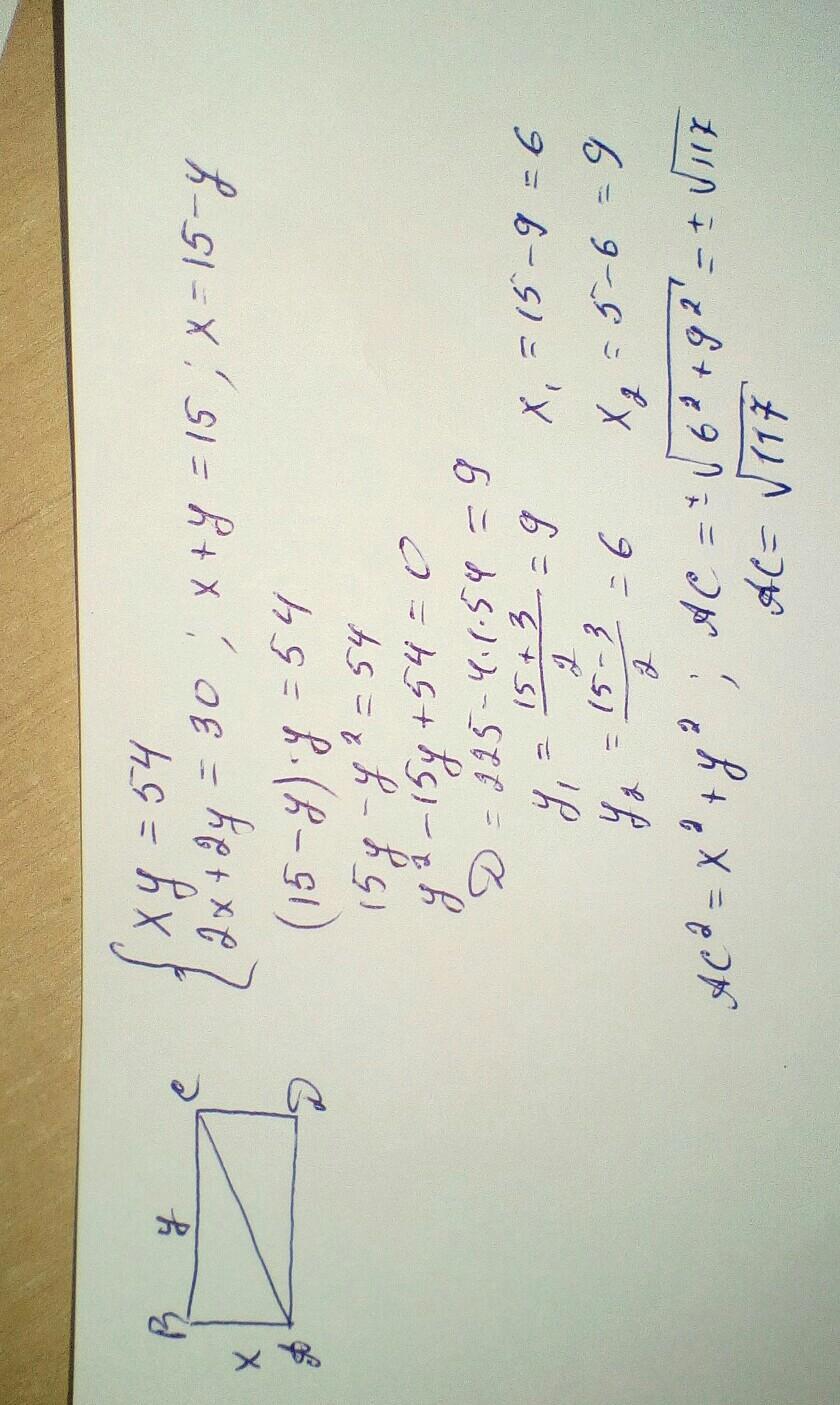 B y C
x
A D
{ xy = 54
2x + 2y = 30 ; x + y = 15 ; x = 15 - y
(15 - y) · y = 54
15y - y² = 54
y² - 15y + 54 = 0
D = 225 - 4·1·54 = 9
y₁ = (15 + 3)/2 = 9 x₁ = 15 - 9 = 6
y₂ = (15 - 3)/2 = 6 x₂ = 5 - 6 = 9
AC² = x² + y² ; AC = ±√(6² + 9²) = ±√117
AC = √117